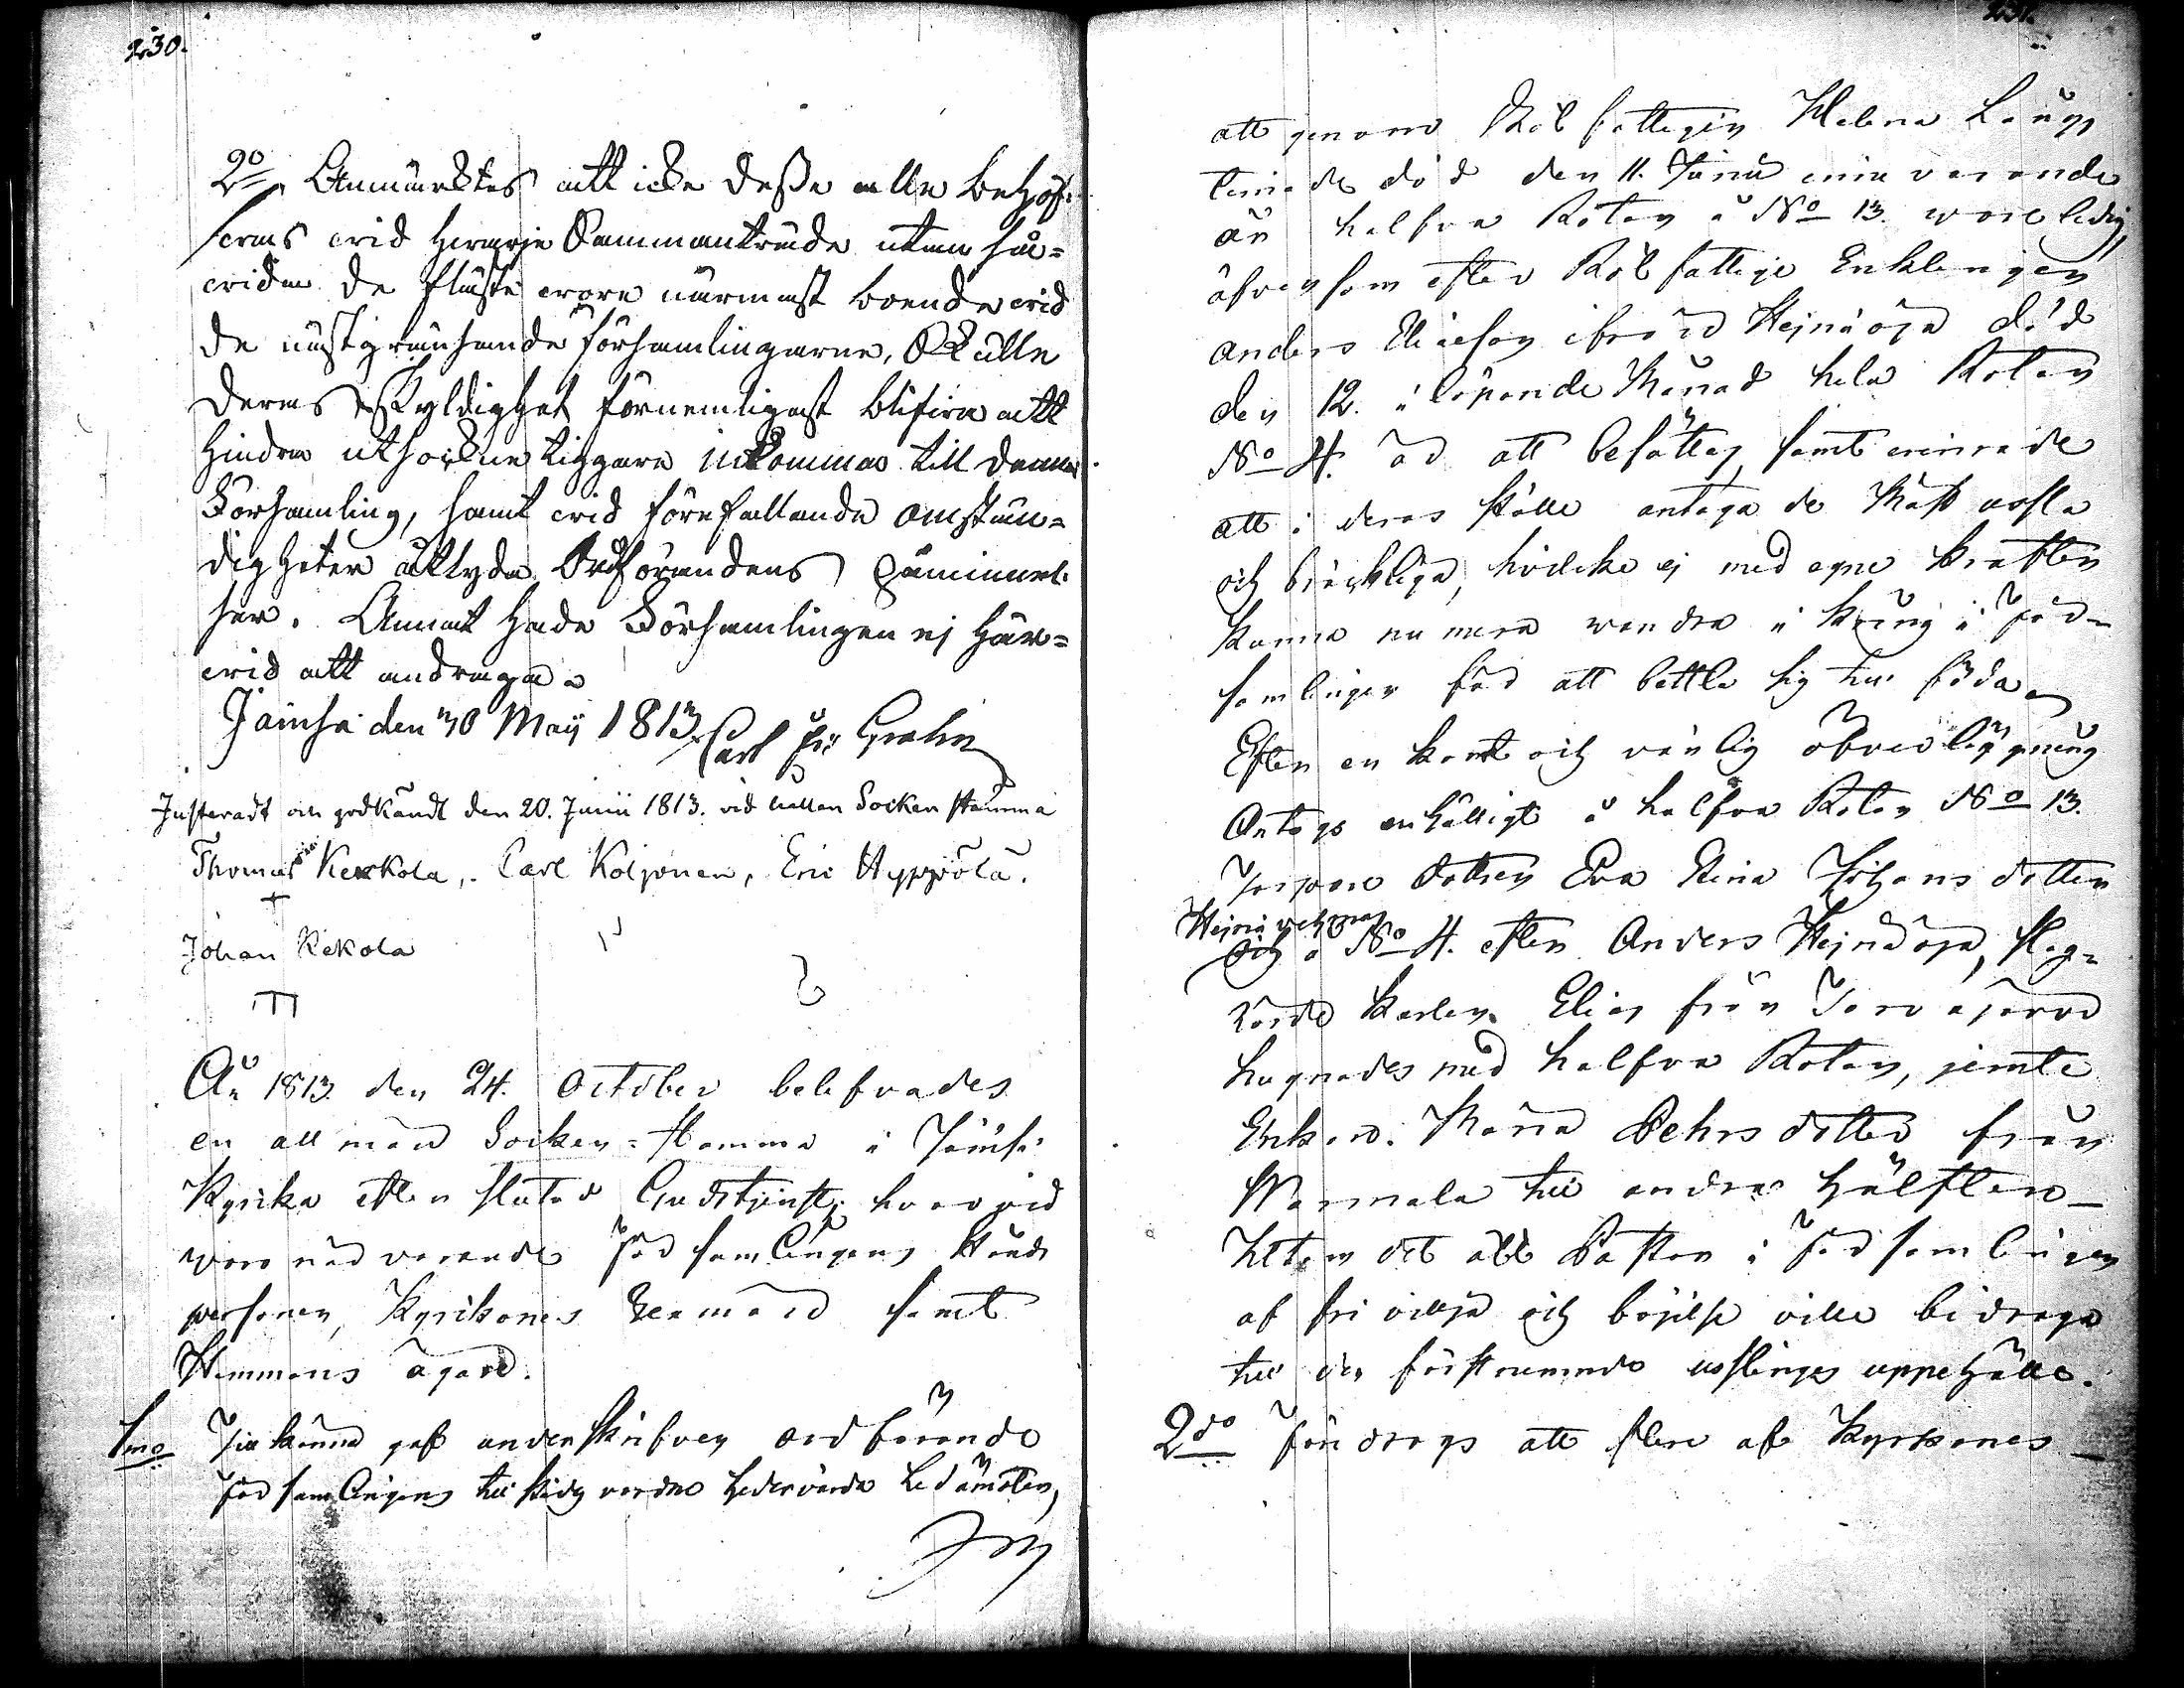 230.
2o Anmärktes att icke desse alla behöf-
vas vid hvarje Sammanträde utan så-
vida de fläste vore närmast boende vid
de nästgränsande församlingarne, Skulle
deras Skyldighet förnemligast blifva att
hindra utsockne tiggare inkomma till denna
Församling, samt vid förefallande omstän-
digheter åtlyda Ordförandens påminnel-
ser. Annat hade Församlingen ej här-
vid att andraga.
Jämsä den 30 Maij 1813. Carl Fr: Grahn
Justeradt och godkändt den 20. Junii 1813. vid hållen Socken stämma
Thomas Kerkola, Carl Koljonen, Eric Hyppölä.
Johan Kekola
År 1813. den 24. October belefvades
en allmän Socken-Stämma i Jämsä
Kyrka efter slutad Gudstjenst, hvarvid
voro närvarande Församlingens Stånds
personer, Kyrkones Sexmän samt
Hemmans ägare.
1mo Tillkänna gaf underskrifven ordförande
församlingens tillstädes varande hedervärda Ledamöter,
231.
att genom Rotfattigen Helena
död den 11. Junii innevarande
år halfva Roten å No 13. wore ledig,
äfvensom efter Rotfattige Enklingen
Anders Eliæson ifrån Heinäoja död
den 12. i löpande Månad hela Roten
No 4. är att besättas, samt
att i deras ställe antaga de Mäst usla
och bräckliga, hvilcka ej med egne krafter
kunna nu mera wandra i kring i För-
samlingen för att bettla sig till föda.
Efter en kort och vänlig öfverläggning
Antogs enhälligt å halfva Roten No 13.
dottren Eva Stina Johans dotter
Heinä
och å No 4. efter Anders Heinäoja,
karlen Elias från
hugnades med halfva Roten, jemte
Enkan Maria Pehrs dotter från
till andra hälften
Utom det att i Församlingen
af fri villja och böjelse ville bidraga
till den förstnemnde uslinges uppehälle.
2do Fördrogs att flere af Kyrkones